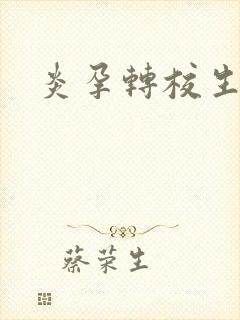 炎孕轉校生
蔡荣生